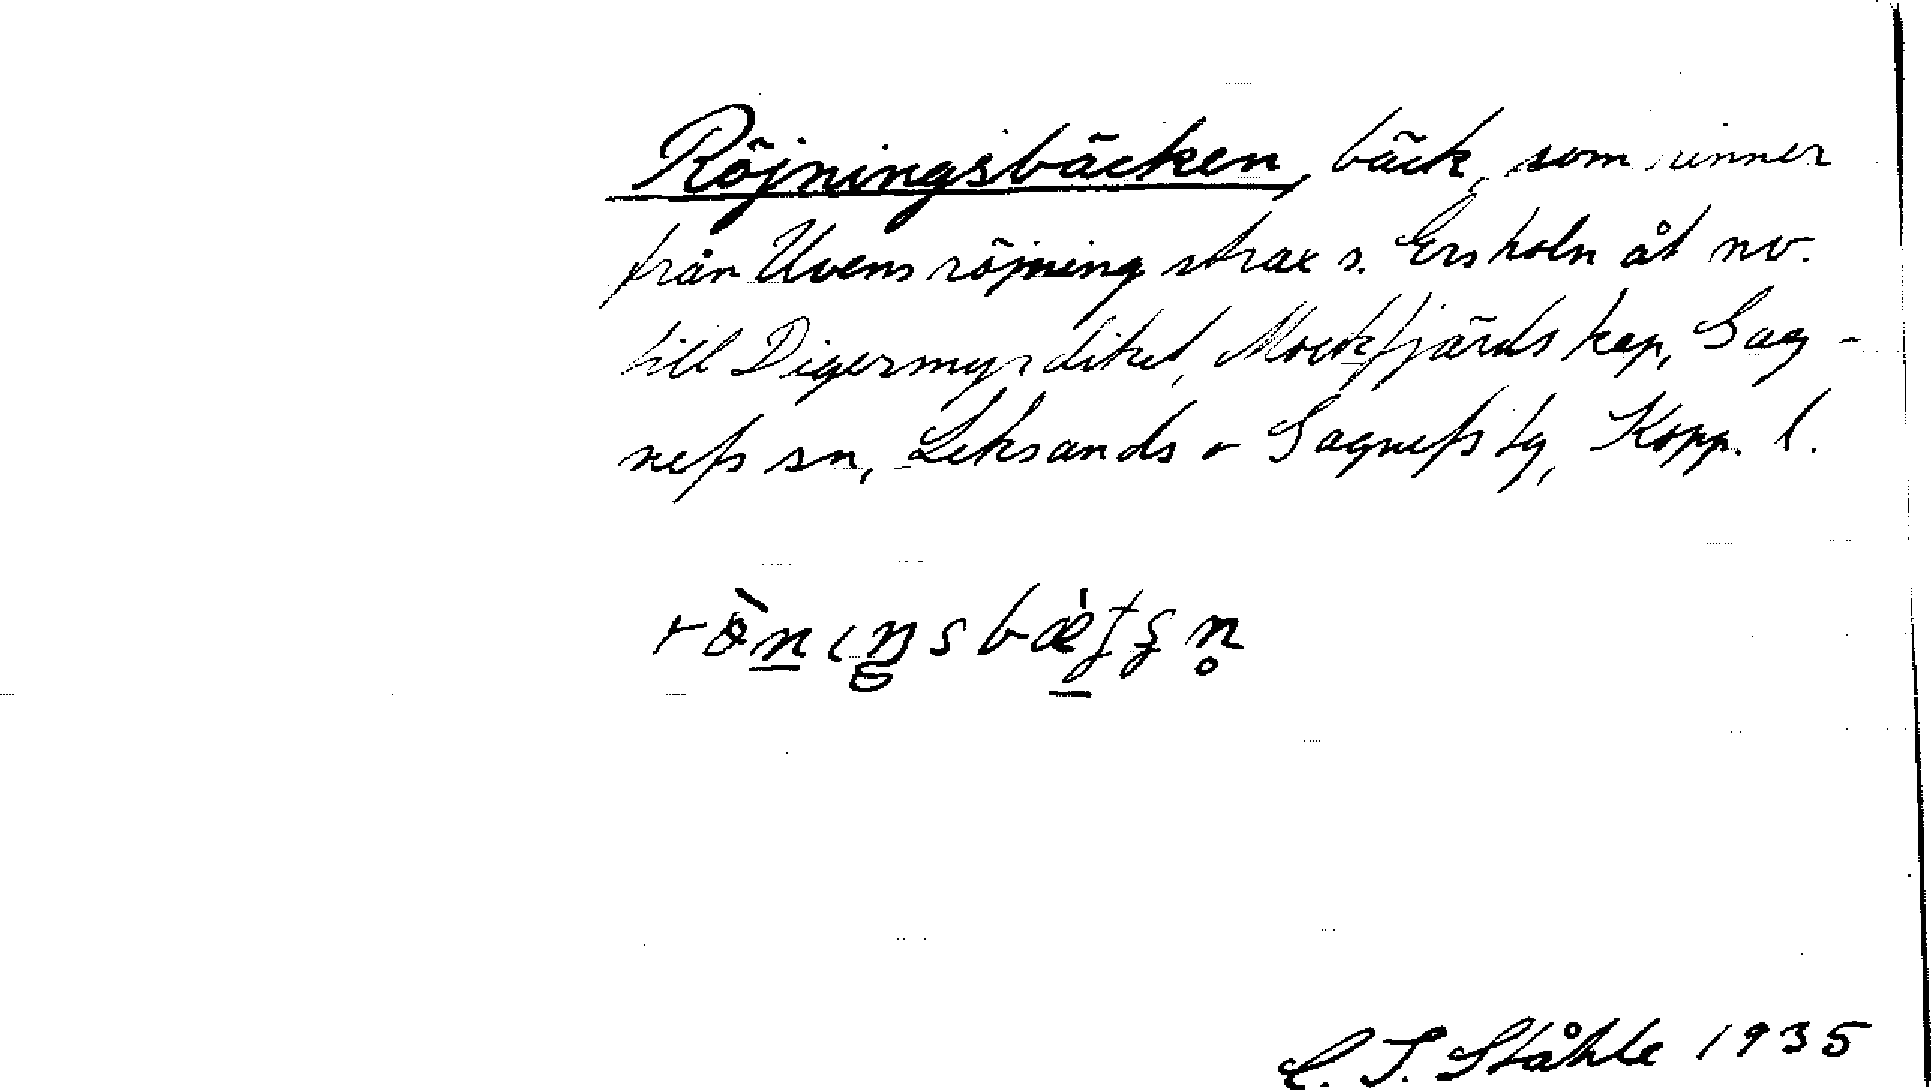 Röjningsbäcken, bäck, som rinner
från Uvens röjning strax s. Ersholn åt nv.
till Digermyrdiket, Mockfjärds kap, Gag-
nefs sn, Leksands o Gagnefs tg, Kopp. l.
C. I. Ståhle 1935